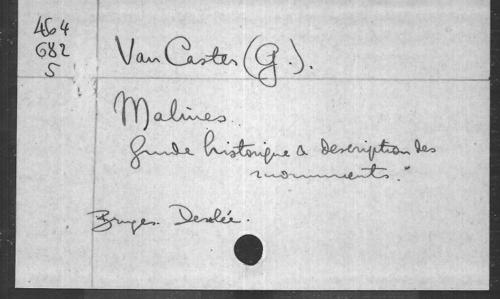 464
682
S
Van Caster (G.).
Malines.
Guide historique & description des
monuments."
Bruges. Desclée.